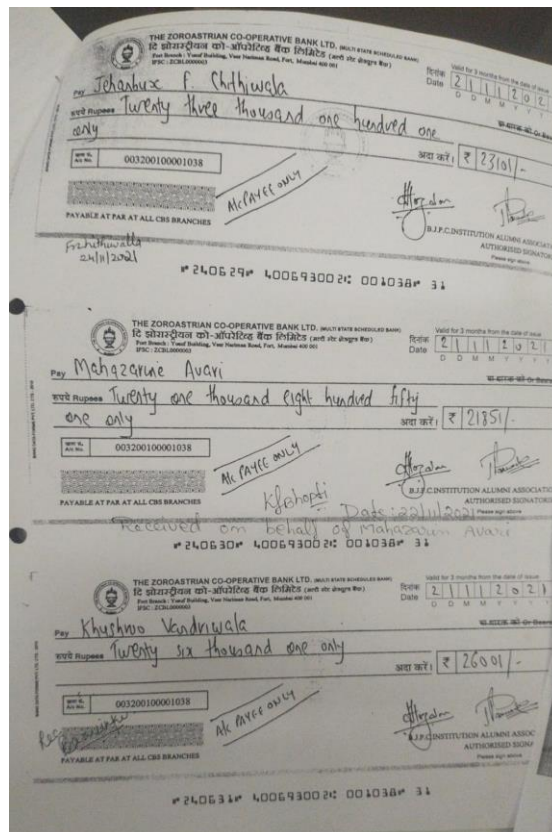 THE ZOROASTRIAN CO-OPERATIVE BANK LTD. (MULTI STATE SCHEDULED BANK)
दि झोरास्ट्रीयन को-ऑपरेटिव्ह बँक लिमिटेड
Fort Branch : Yusuf Building, Veer Nariman Road, Fort, Mumbai 400 001
IFSC : ZCBL0000003
Valid for 3 months from the date of issue
दिनांक
Date 2 1 1 1 2 0 2
D D M M Y Y Y
Pay Jehanbux F. Chithiwala
रुपये Rupees Twenty three thousand one hundred one
only
अदा करें। ₹ 23101/-
003200100001038
A/c PAYEE ONLY
PAYABLE AT PAR AT ALL CBS BRANCHES
B.J.P.C.INSTITUTION ALUMNI ASSOCIAT
AUTHORISED SIGNATOR
Please sign above
24/11/2021
⑈240629⑈ 400693002⑆ 001038⑈ 31
THE ZOROASTRIAN CO-OPERATIVE BANK LTD. (MULTI STATE SCHEDULED BANK)
दि झोरास्ट्रीयन को-ऑपरेटिव्ह बँक लिमिटेड
Fort Branch : Yusuf Building, Veer Nariman Road, Fort, Mumbai 400 001
IFSC : ZCBL0000003
Valid for 3 months from the date of issue
दिनांक
Date 2 1 1 1 2 0 2 1
D D M M Y Y Y Y
Pay Mahazarine Avari
रुपये Rupees Twenty one thousand eight hundred fifty
one only
अदा करें। ₹ 21851/-
003200100001038
A/c PAYEE ONLY
PAYABLE AT PAR AT ALL CBS BRANCHES
B.J.P.C.INSTITUTION ALUMNI ASSOCIATIO
AUTHORISED SIGNATORI
Please sign above
Date: 22/11/2021
Received on behalf of Mahazarin Avari
⑈240630⑈ 400693002⑆ 001038⑈ 31
THE ZOROASTRIAN CO-OPERATIVE BANK LTD. (MULTI STATE SCHEDULED BANK)
दि झोरास्ट्रीयन को-ऑपरेटिव्ह बँक लिमिटेड
Fort Branch : Yusuf Building, Veer Nariman Road, Fort, Mumbai 400 001
IFSC : ZCBL0000003
Valid for 3 months from the date of issue
दिनांक
Date 2 1 1 1 2 0 2 1
D D M M Y Y Y
Pay Khushroo Vandriwala
रुपये Rupees Twenty six thousand one only
अदा करें। ₹ 26001/-
003200100001038
A/c PAYEE ONLY
PAYABLE AT PAR AT ALL CBS BRANCHES
B.J.P.C.INSTITUTION ALUMNI ASSOC
AUTHORISED SIGNA
Please sign above
⑈240631⑈ 400693002⑆ 001038⑈ 31